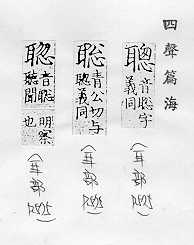 四聲篇海
聰音聡字義同
(耳部 P.525)
聡青公切与聰義同
(耳部 P.525)
聦音聡明察聽聞也
(耳部 P.525)